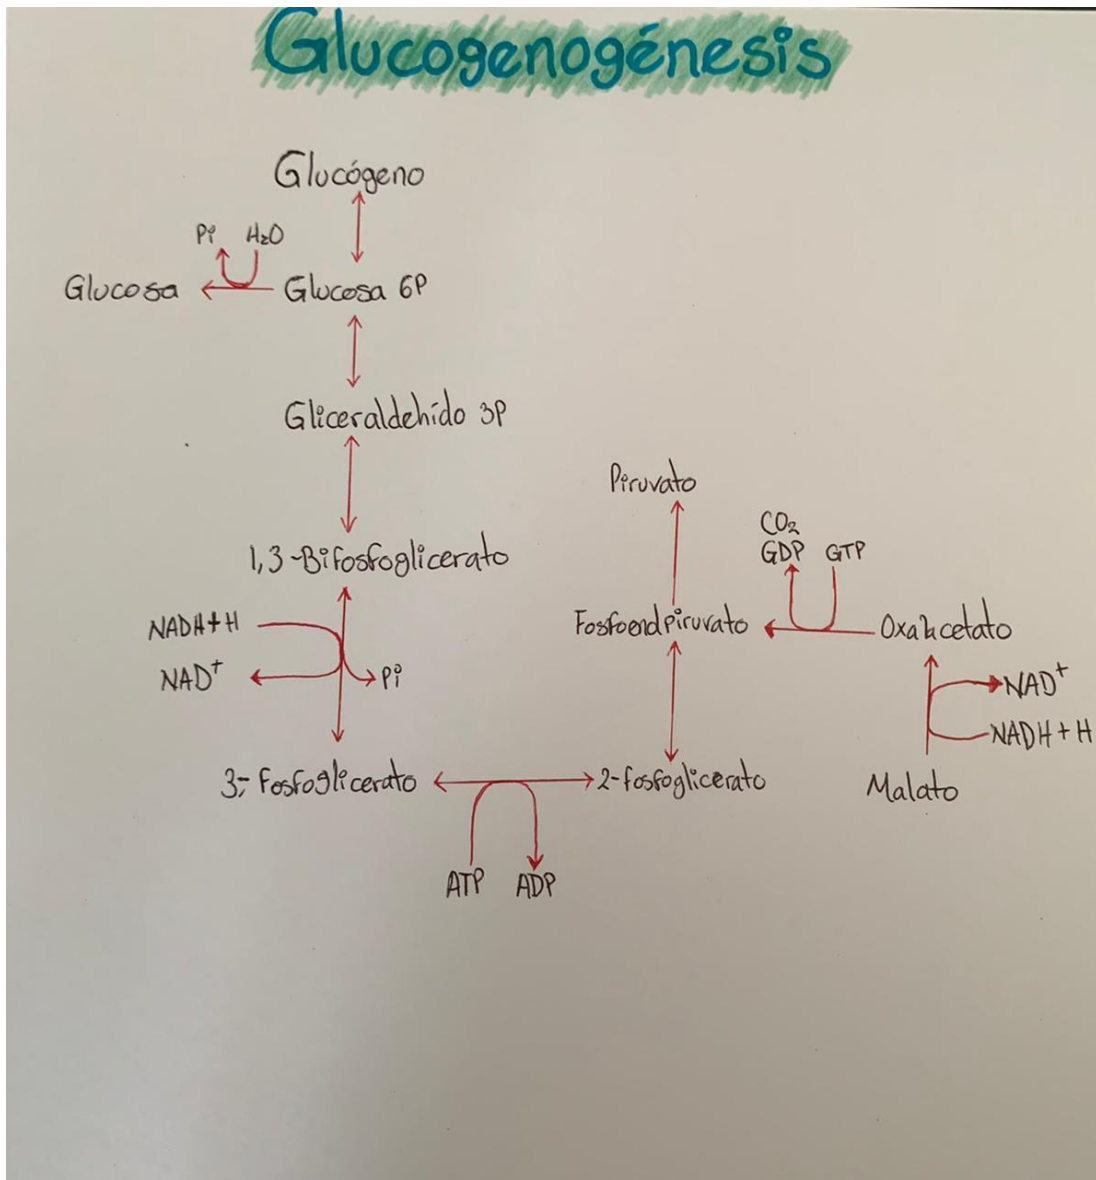 Glucogenogénesis
Glucógeno
Pi H₂O
Glucosa
Glucosa 6P
Gliceraldehído 3P
1,3-Bifosfoglicerato
NADH+H
NAD⁺
Pi
3,-Fosfoglicerato
ATP
ADP
2-fosfoglicerato
Piruvato
CO₂
GDP GTP
Fosfoendpiruvato
Oxalacetato
NAD⁺
NADH+H
Malato